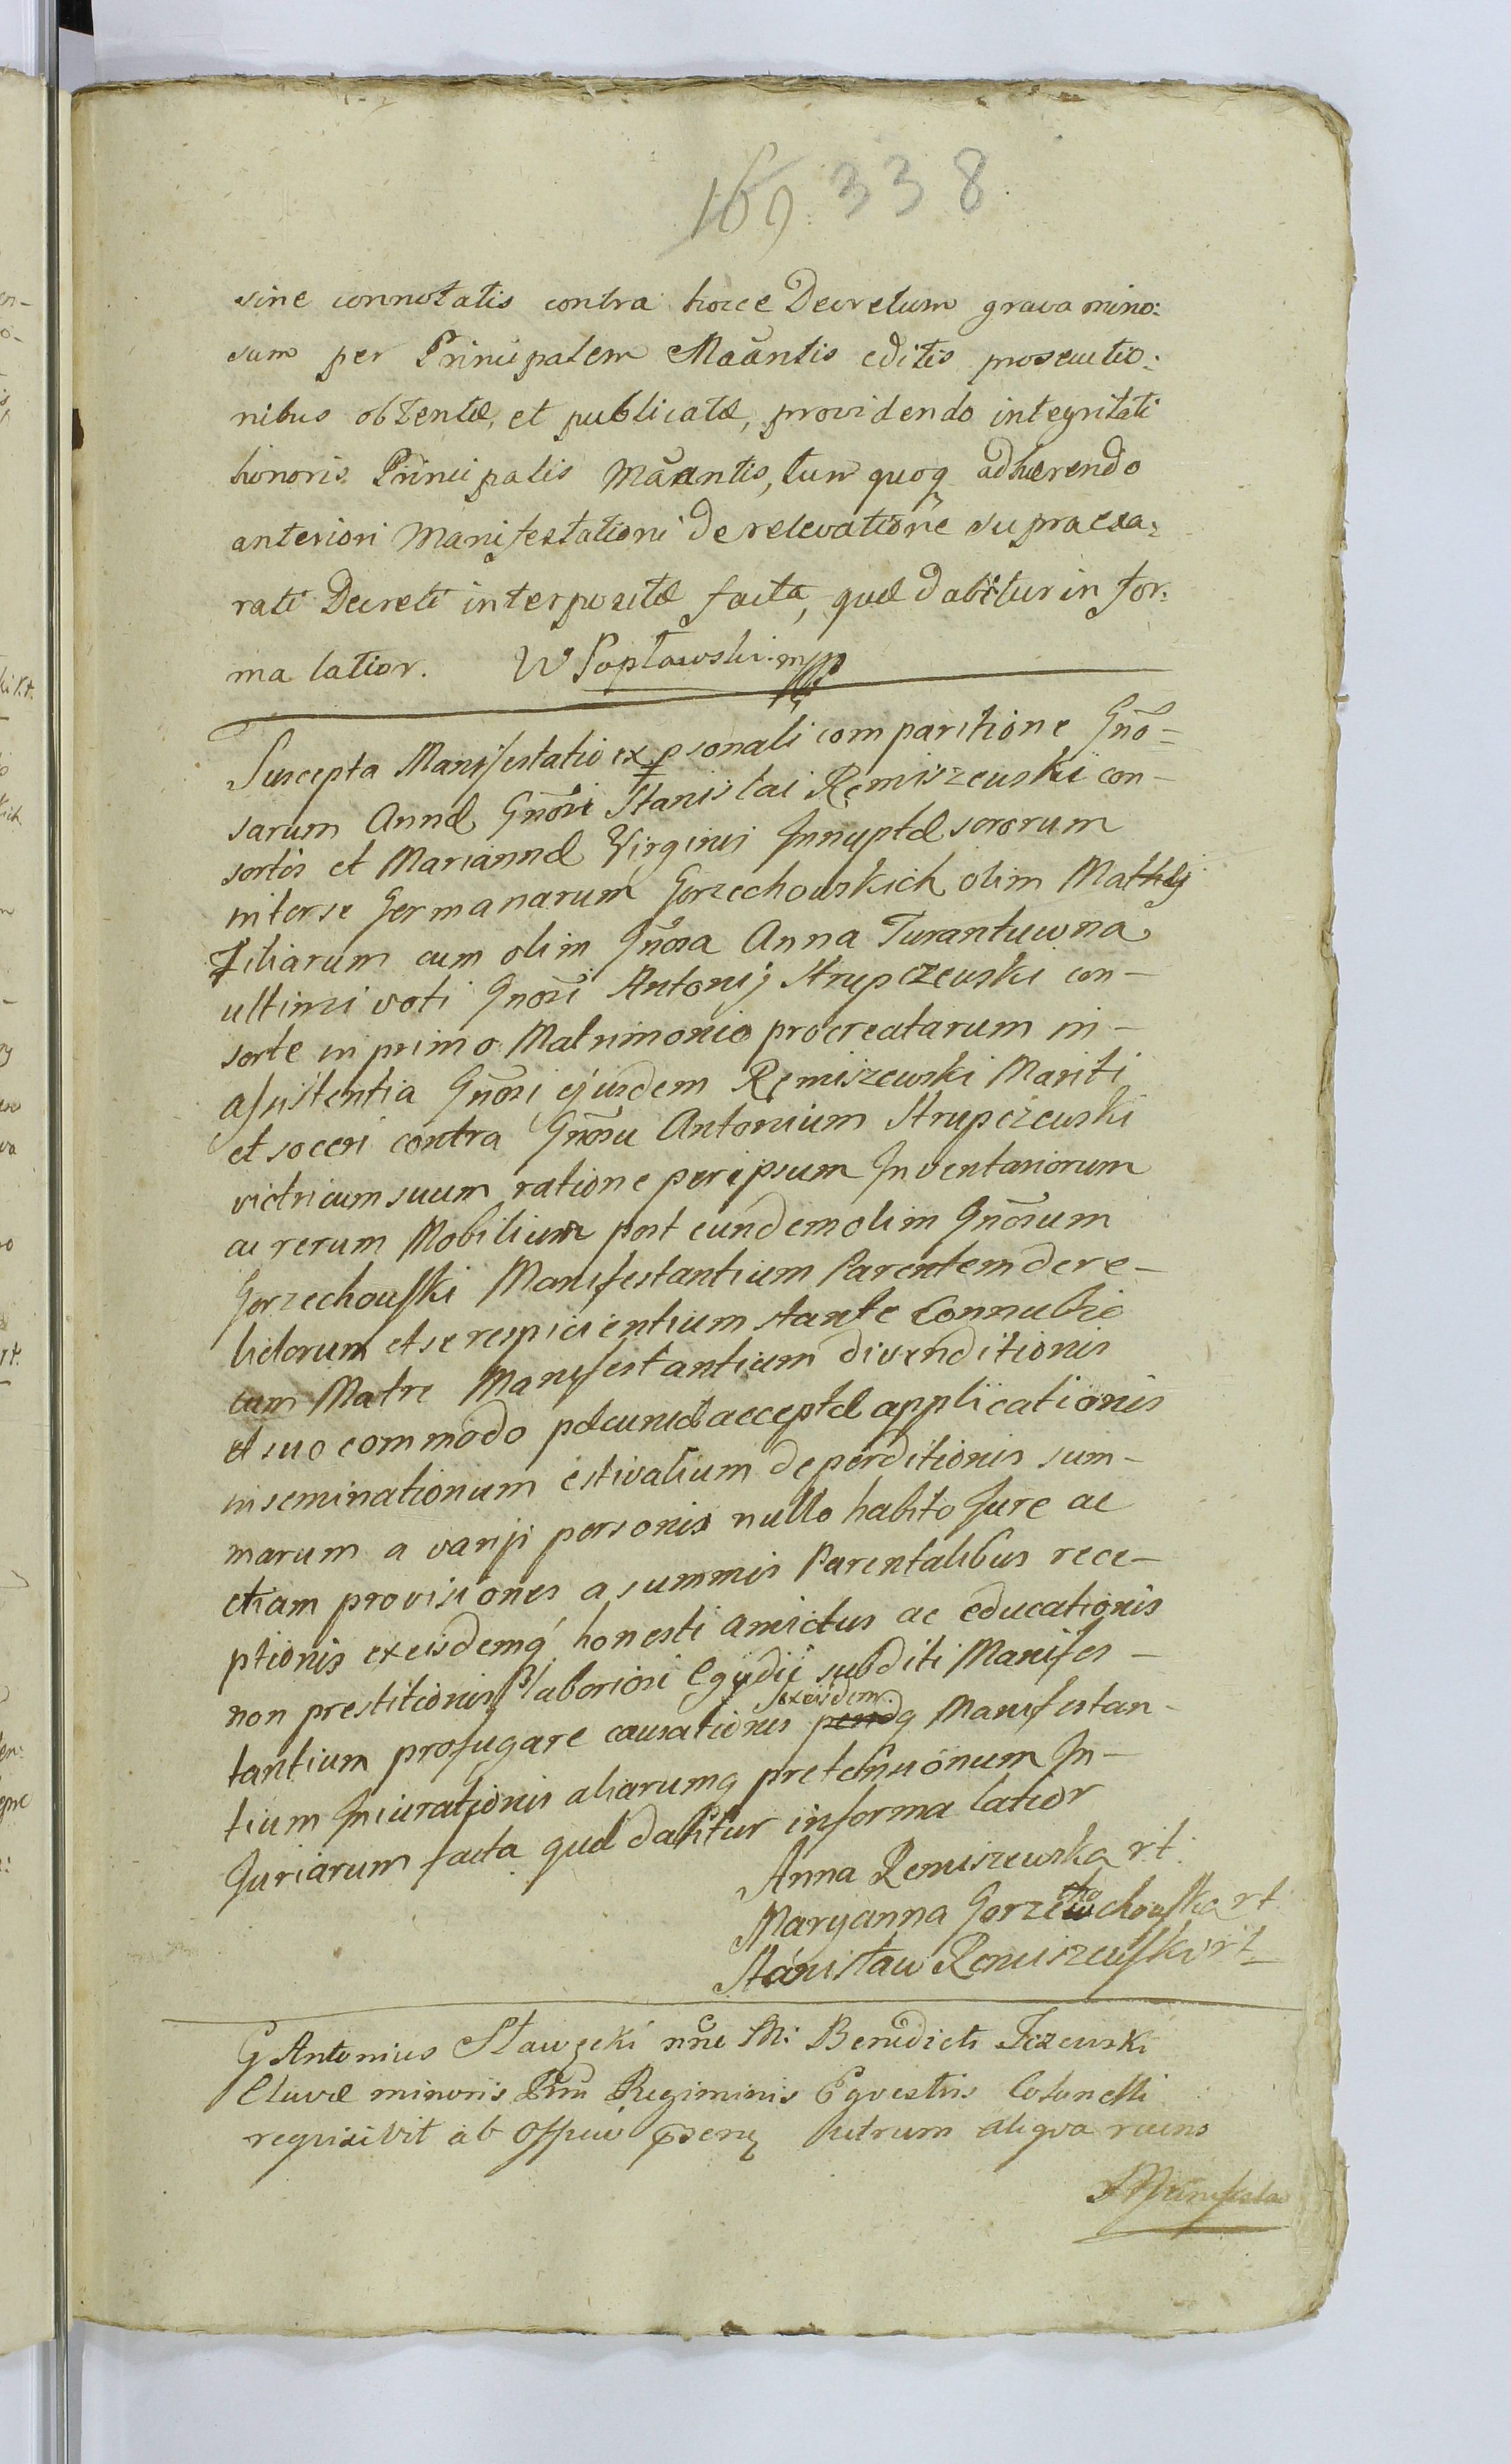 169. 338.
sine connotatis contra hocce Decretum gravamino:
sum per Principalem Mãantis editis prosecutio:
nibus obtentæ, et publicatæ, providendo integritati
honoris Principalis Mãantis, tum quoq adhærendo
anteriori Manifestationi de relevatione supraexa:
rati Decreti interpositæ facta, quæ dabitur in for:
ma latior. W Popławski mpp
Suscepta Manifestatio ex psonali comparitione Gno=
sarum Annæ Gnosi Stanislai Remiszewski con-
sortis et Mariannæ Virginis Innuptæ sororum
interse Germanarum Gorzechowskich olim Mathej
Filiarum cum olim Gnosa Anna Turantuwna
ultimi voti Gnosi Antonij Strupczewski con-
sorte in primo Matrimonio procreatarum in-
assistentia Gnosi ejusdem Remiszewski Mariti
et soceri contra Gnosu Antonium Strupczewski
victricum suum ratione per ipsum Inventariorum
ac rerum Mobilium post eundem olim Gnosum
Gorzechowski Manifestantium Parentem dere-
lictorum et se respicientium stante Connubio
cum Matre Manifestantium divenditionis
et suo commodo pæcuniæ acceptæ applicationis
inseminationum estivalium deperditionis sum-
marum a varijs personis nullo habito Jure ac
etiam provisiones a summis Parentalibus rece-
ptionis exeisdemq honesti amictus ac educationis
non prestitionis laboriosi Egydii subditi Manifes-
tantium profugare causationis exeisdem q Manifestan-
tium Iniurationis aliarumq pretensionum In-
juriarum facta quæ dabitur in forma latior
Anna Remiszewska rt.
Maryanna Gorzechowska rt
Stanisław Remiszewski rt
G Antonius Sławęcki nne M: Benedicti Jezewski
Clavæ minoris Regiminis Eqvestris Colonelli
reqvisivit ab Officio utrum aliqva